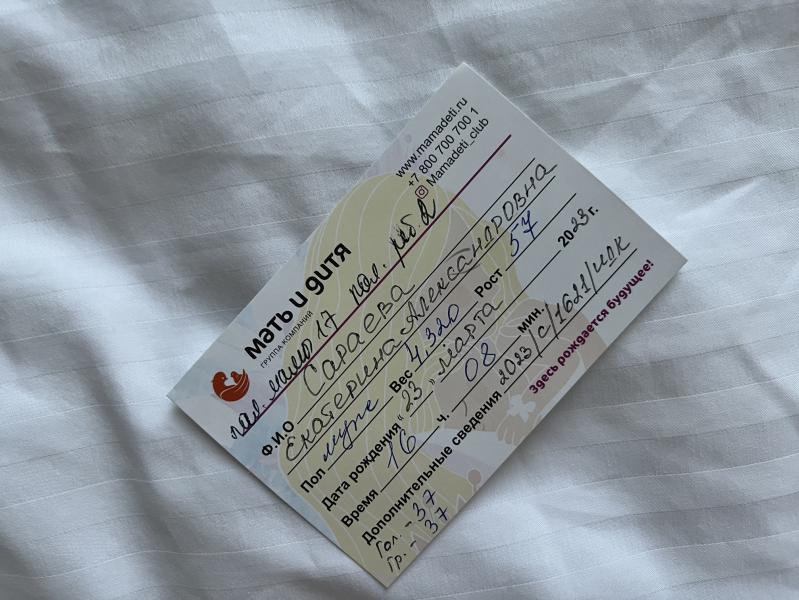 мать и дитя
ГРУППА КОМПАНИЙ
www.mamadeti.ru
+7 800 700 700 1
Mamadeti_club
пал. мамо 17 пал. реб 2
Ф.И.О Сараева
Екатерина Александровна
Пол муж Вес 4,320 Рост 57
Дата рождения « 23 » марта 2023 г.
Время 16 ч. 08 мин.
Дополнительные сведения 2023/с/1621/ИДК
Гол. - 37
Гр. - 37
Здесь рождается будущее!